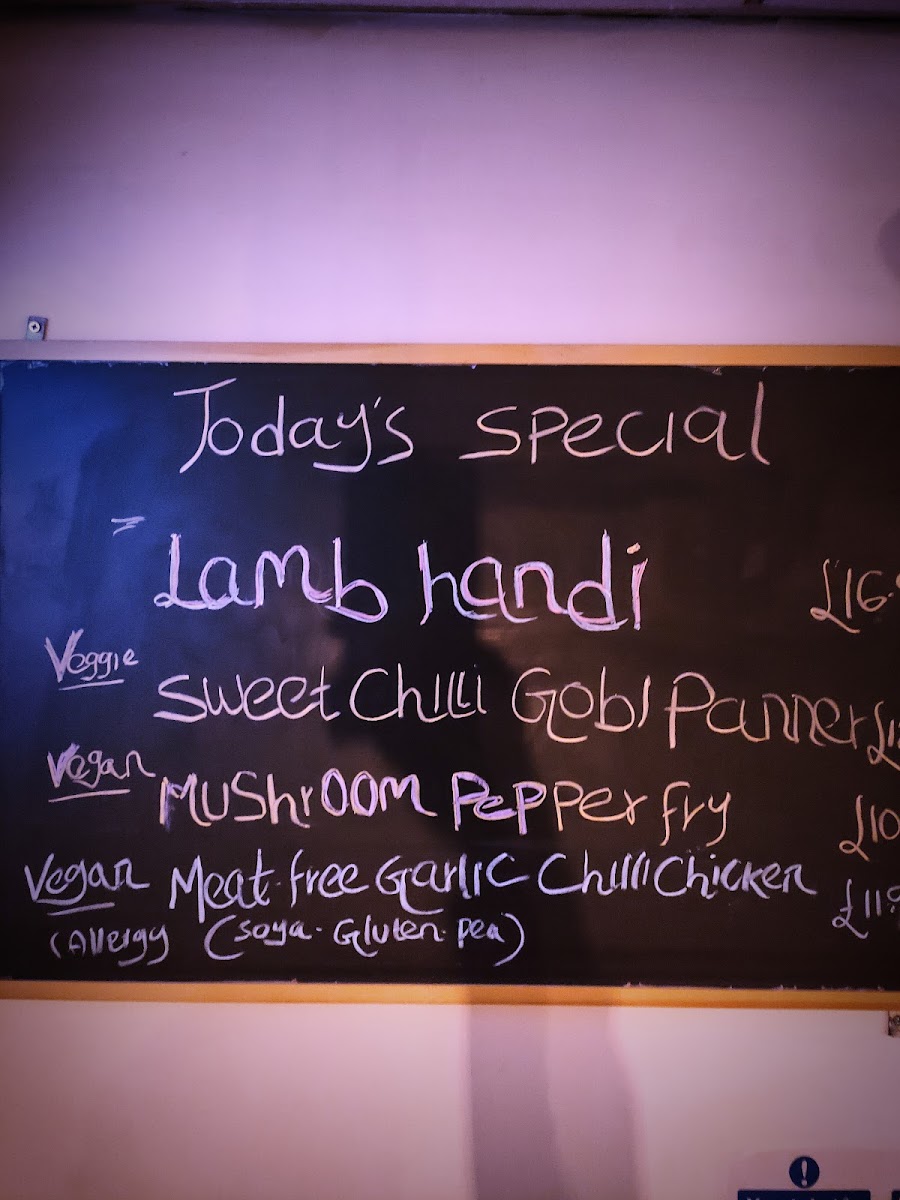 Today's Special
Lamb handi £16.
Veggie Sweet Chilli Gobi Panner
Vegan Mushroom Pepper fry £10
Vegan Meat free Garlic Chilli Chicken £11.9
(Allergy (Soya. Gluten. pea)